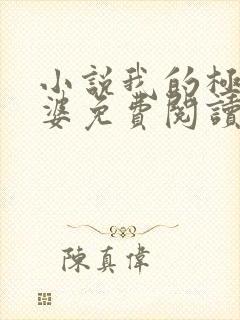 小說我的極
婆免費閱讀
陳真偉